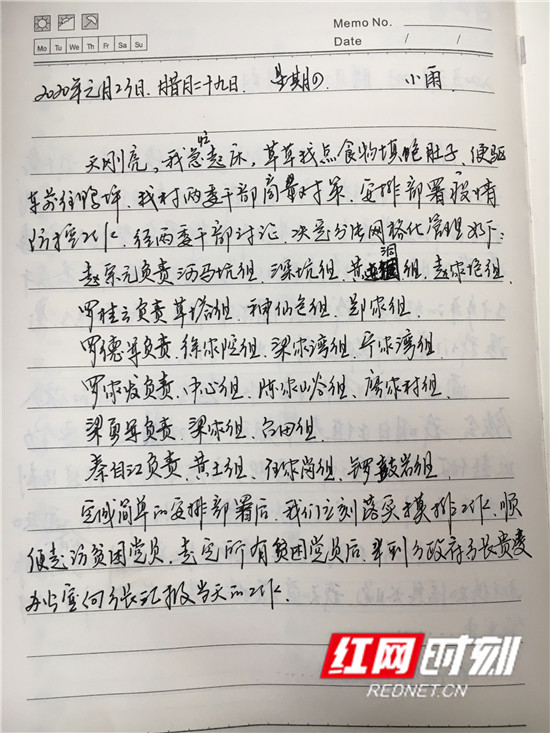 Memo No.
Mo Tu We Th Fr Sa Su
Date / /
2020年元月23日.腊月二十九日. 星期四 小雨.
天刚亮,我急忙起床,草草找点食物填饱肚子,便驱
车前往鸭坪.我村两委干部商量对策.安排部署疫情
防控工作.经两委干部讨论.决定分片网格化管理如下:
赵宗元负责洒马坑组.深坑组.黄洞组.赵家屯组.
罗桂云负责草塔组.神仙包组.郑家组.
罗德早负责.徐家院组.梁家湾组.平家湾组
罗家发负责.中心组.陈家山谷组.唐家村组.
梁勇早负责.梁家组.台田组.
秦自江负责.黄土组.任家湾组.锣鼓岩组.
完成简单的安排部署后.我们立刻落实摸排工作.顺
便走访贫困党员.走完所有贫困党员后.来到乡政府乡长
办公室向乡长汇报当天的工作.
红网时刻
REDNET.CN